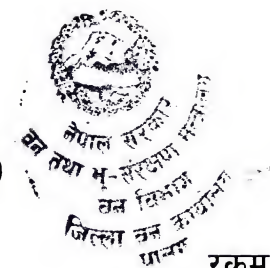 नेपाल सरकार
वन तथा भू-संरक्षण मन्त्रालय
वन विभाग
जिल्ला वन कार्यालय
)
रकम